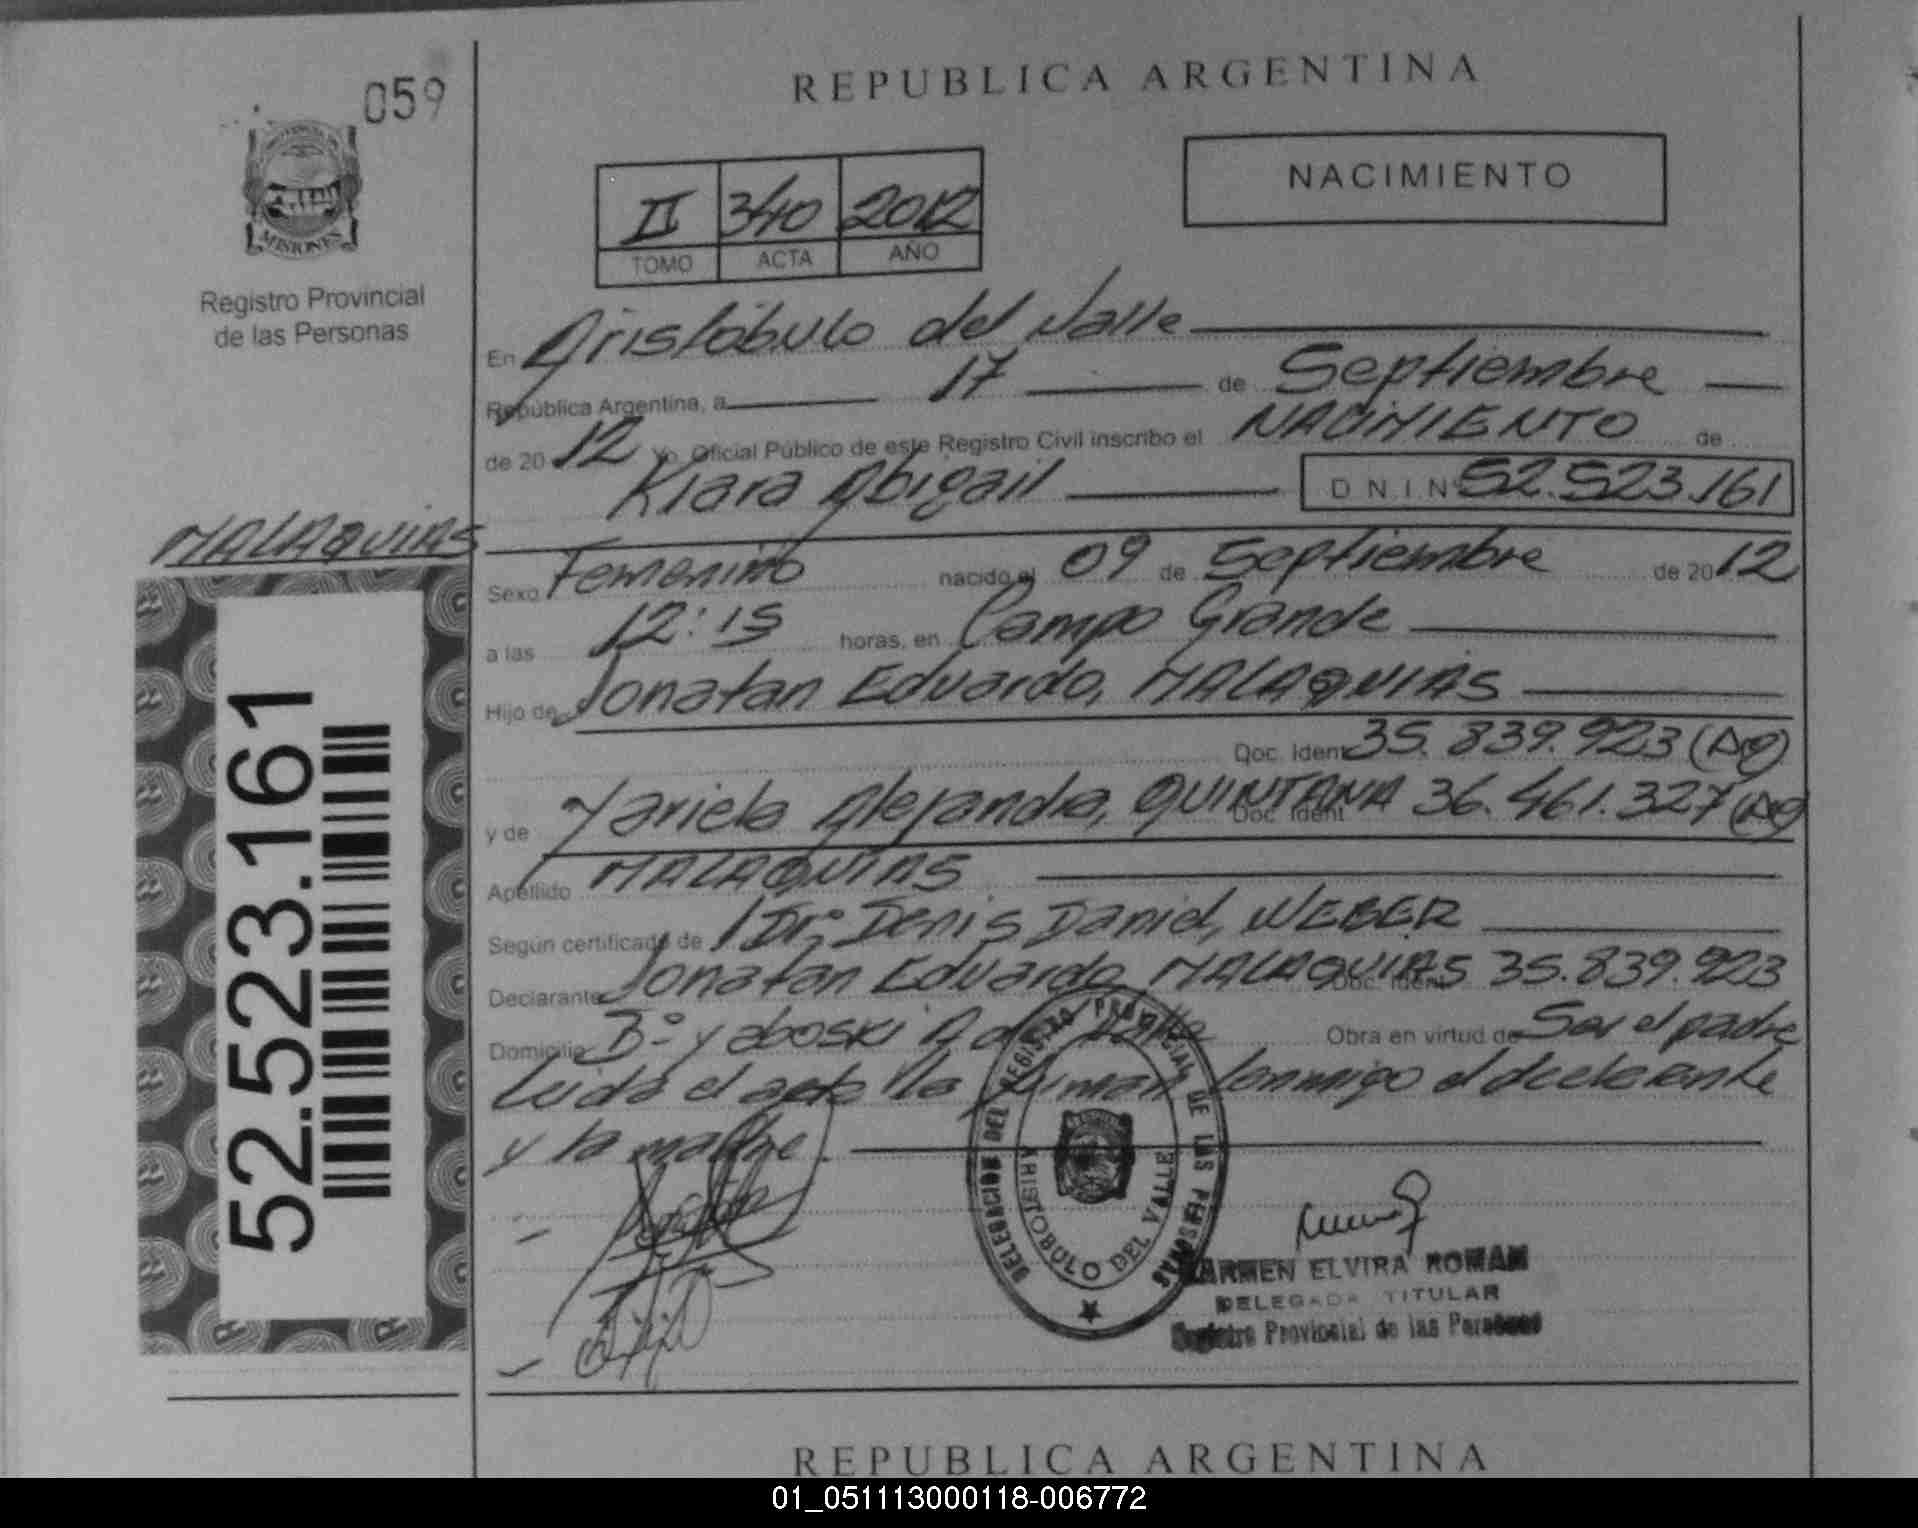 059
MISIONES
Registro Provincial
de las Personas
MALAQUIAS
52.523.161
REPUBLICA ARGENTINA
NACIMIENTO
II 340 2012
TOMO ACTA AÑO
En Aristóbulo del Valle
República Argentina, a 17 de Septiembre
de 2012 Yo, Oficial Público de este Registro Civil inscribo el NACIMIENTO de
Kiara Abigail D N I Nº 52.523.161
Sexo Femenino nacido el 09 de Septiembre de 2012
a las 12:15 horas, en Campo Grande
Hijo de Jonatan Eduardo, MALAQUIAS
Doc. Ident 35.839.923 (Arg)
y de Mariela Alejandra, QUINTANA Doc. Ident 36.461.327 (Arg)
Apellido MALAQUIAS
Según certificado de Dr. Denis Daniel, WEBER
Declarante Jonatan Eduardo MALAQUIAS Doc. Ident 35.839.923
Domicilio Bº Yaboski A del Valle Obra en virtud de Ser el padre
Leida el acta la firman conmigo el declarante
y la madre.
DELEGACION DEL REGISTRO PROVINCIAL DE LAS PERSONAS
ARISTOBULO DEL VALLE
CARMEN ELVIRA ROMAN
DELEGADA TITULAR
Registro Provincial de las Personas
REPUBLICA ARGENTINA
01_051113000118-006772